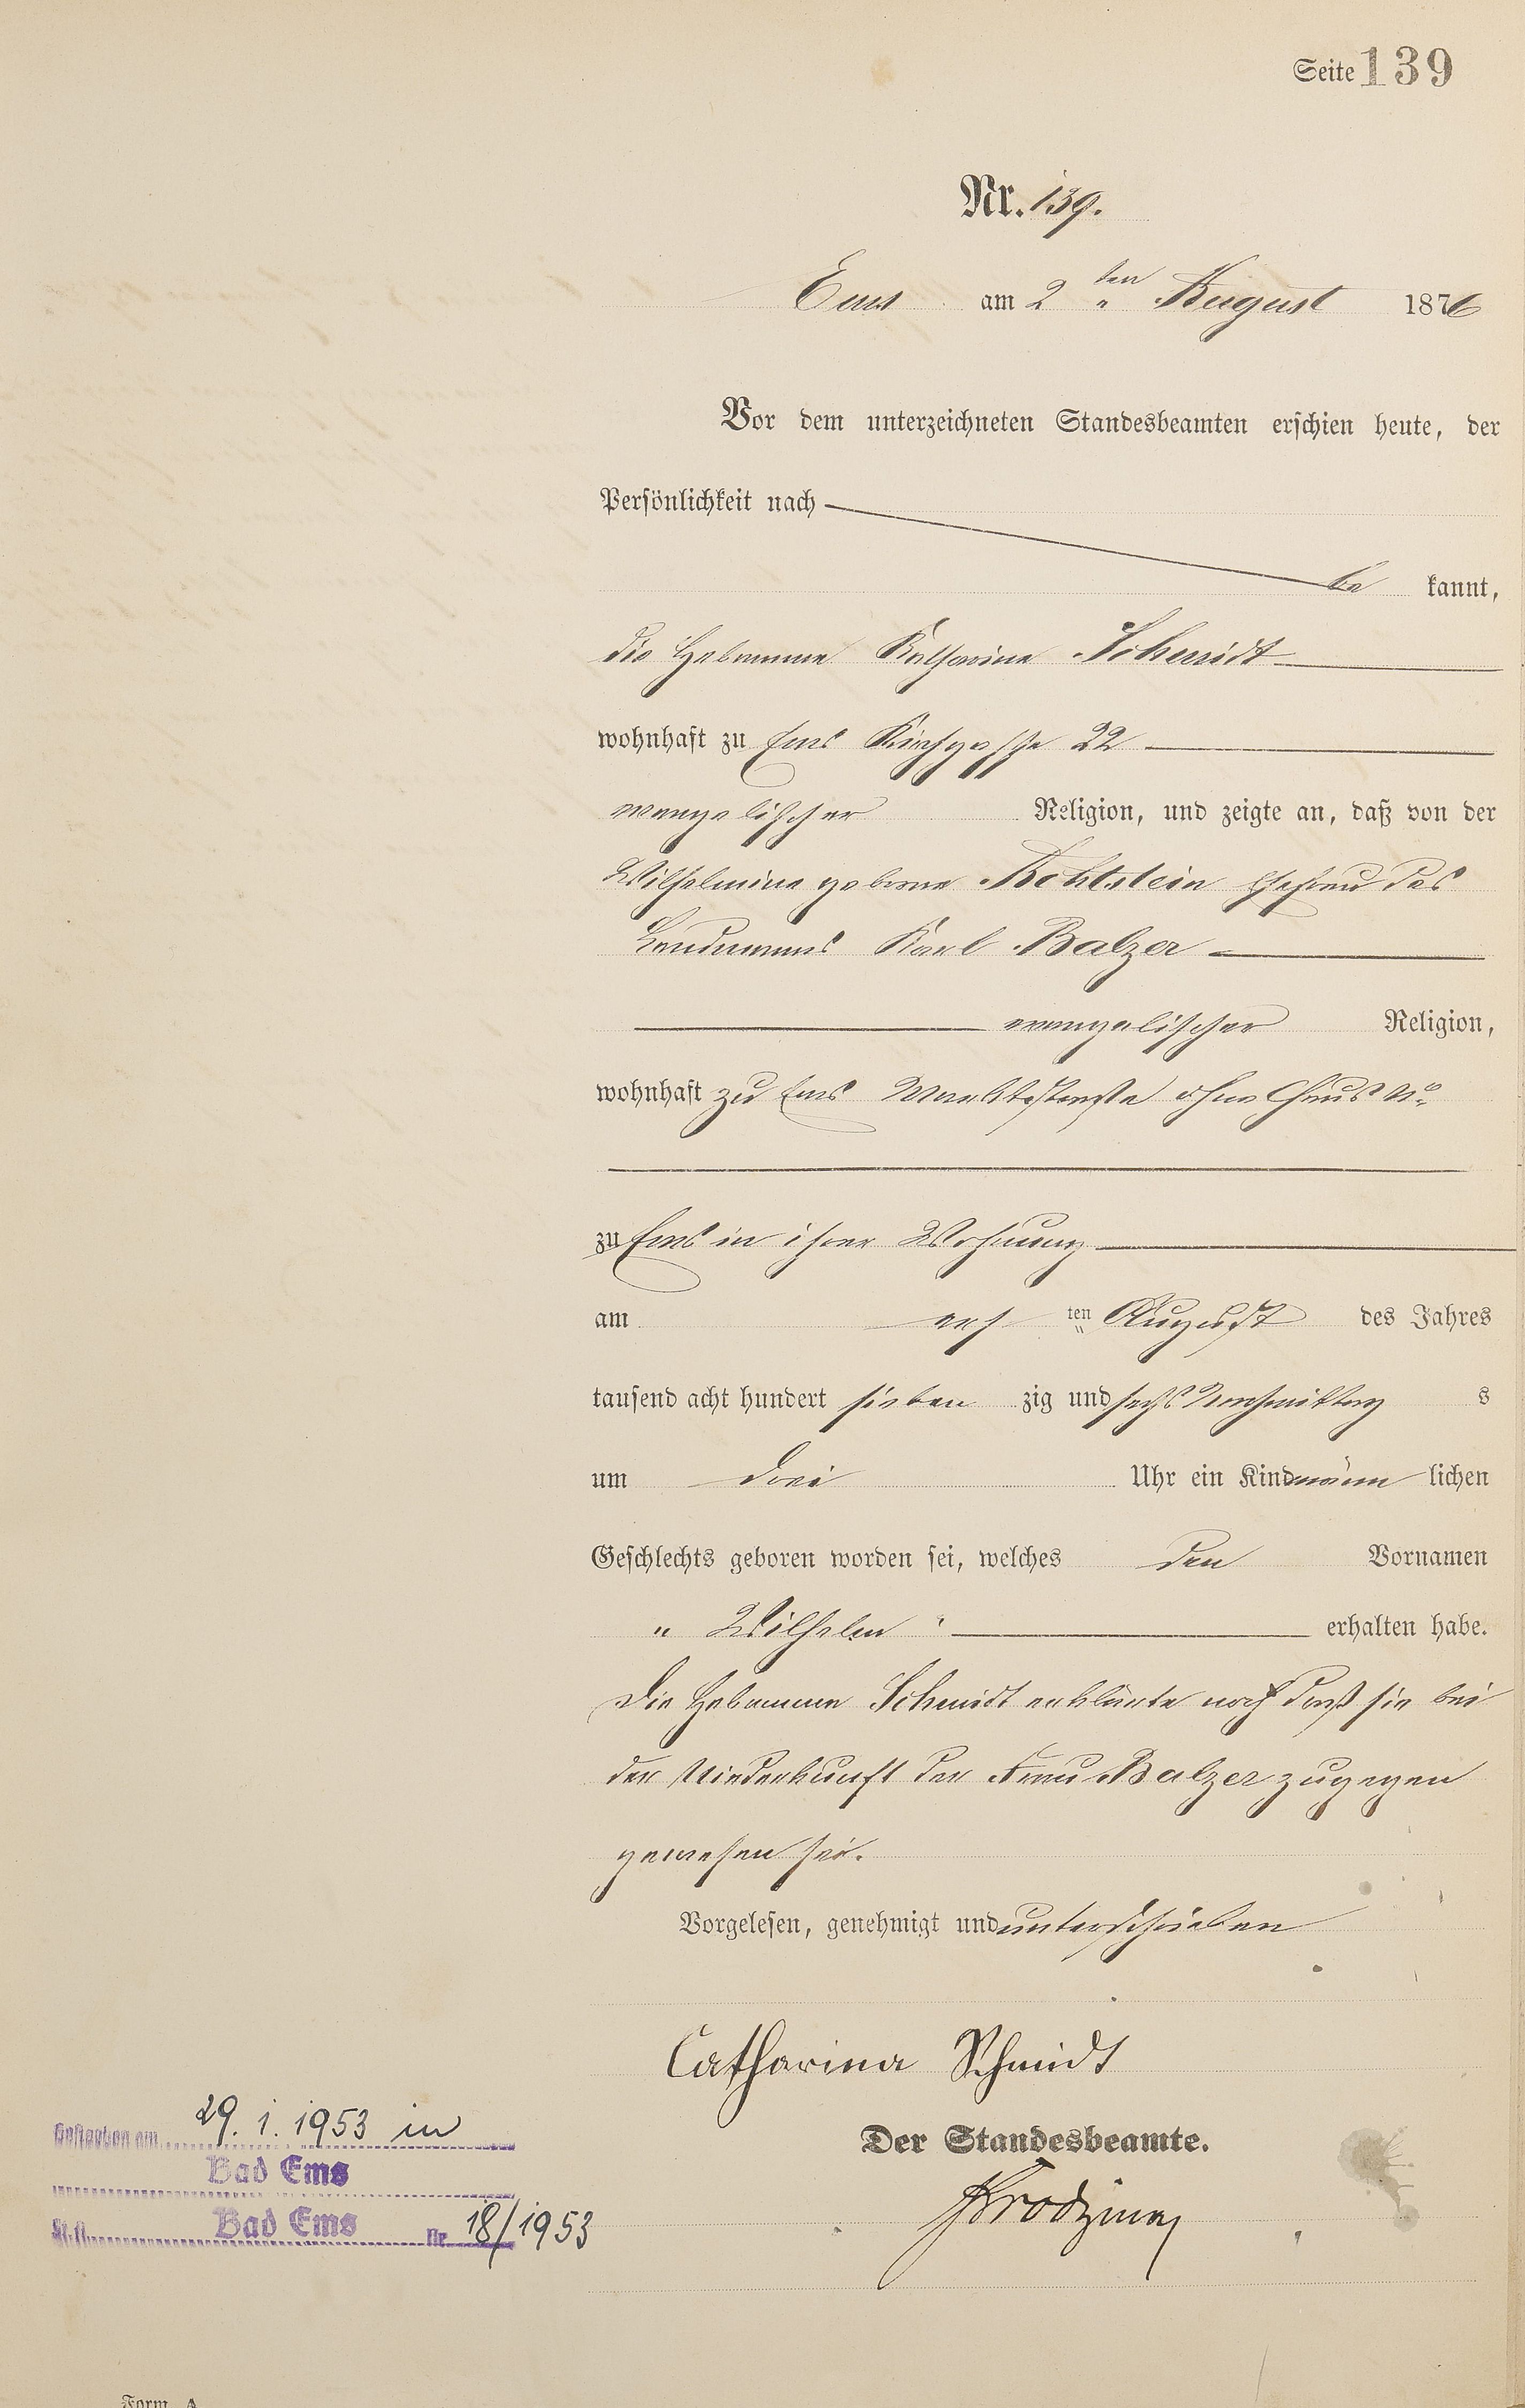 Seite 139
Nr. 139.
Ems am 2ten August 1876
Vor dem unterzeichneten Standesbeamten erschien heute, der
Persönlichkeit nach
be kannt,
die Hebamme Katharina Schmidt
wohnhaft zu Ems Kirchgasse 22
evangelischer Religion, und zeigte an, daß von der
Wilhelmine geborne Ehefrau des
Karl Balzer
evangelischer Religion,
wohnhaft zu Ems ohne Haus No
zu Ems in ihrer Wohnung
am ers ten August des Jahres
tausend acht hundert sieben zig und sechs Nachmittag s
um drei Uhr ein Kind männ lichen
Geschlechts geboren worden sei, welches den Vornamen
" Wilhelm " erhalten habe.
Die Hebamme Schmidt erklärte noch daß sie bei
der Niederkunft der Frau Balzer zugegen
gewesen sei.
Vorgelesen, genehmigt und unterschrieben
Catharina Schmidt
Der Standesbeamte.
Gestorben am 29. 1. 1953 in
Bad Ems
St.A. Bad Ems Nr. 18/1953
Form. A